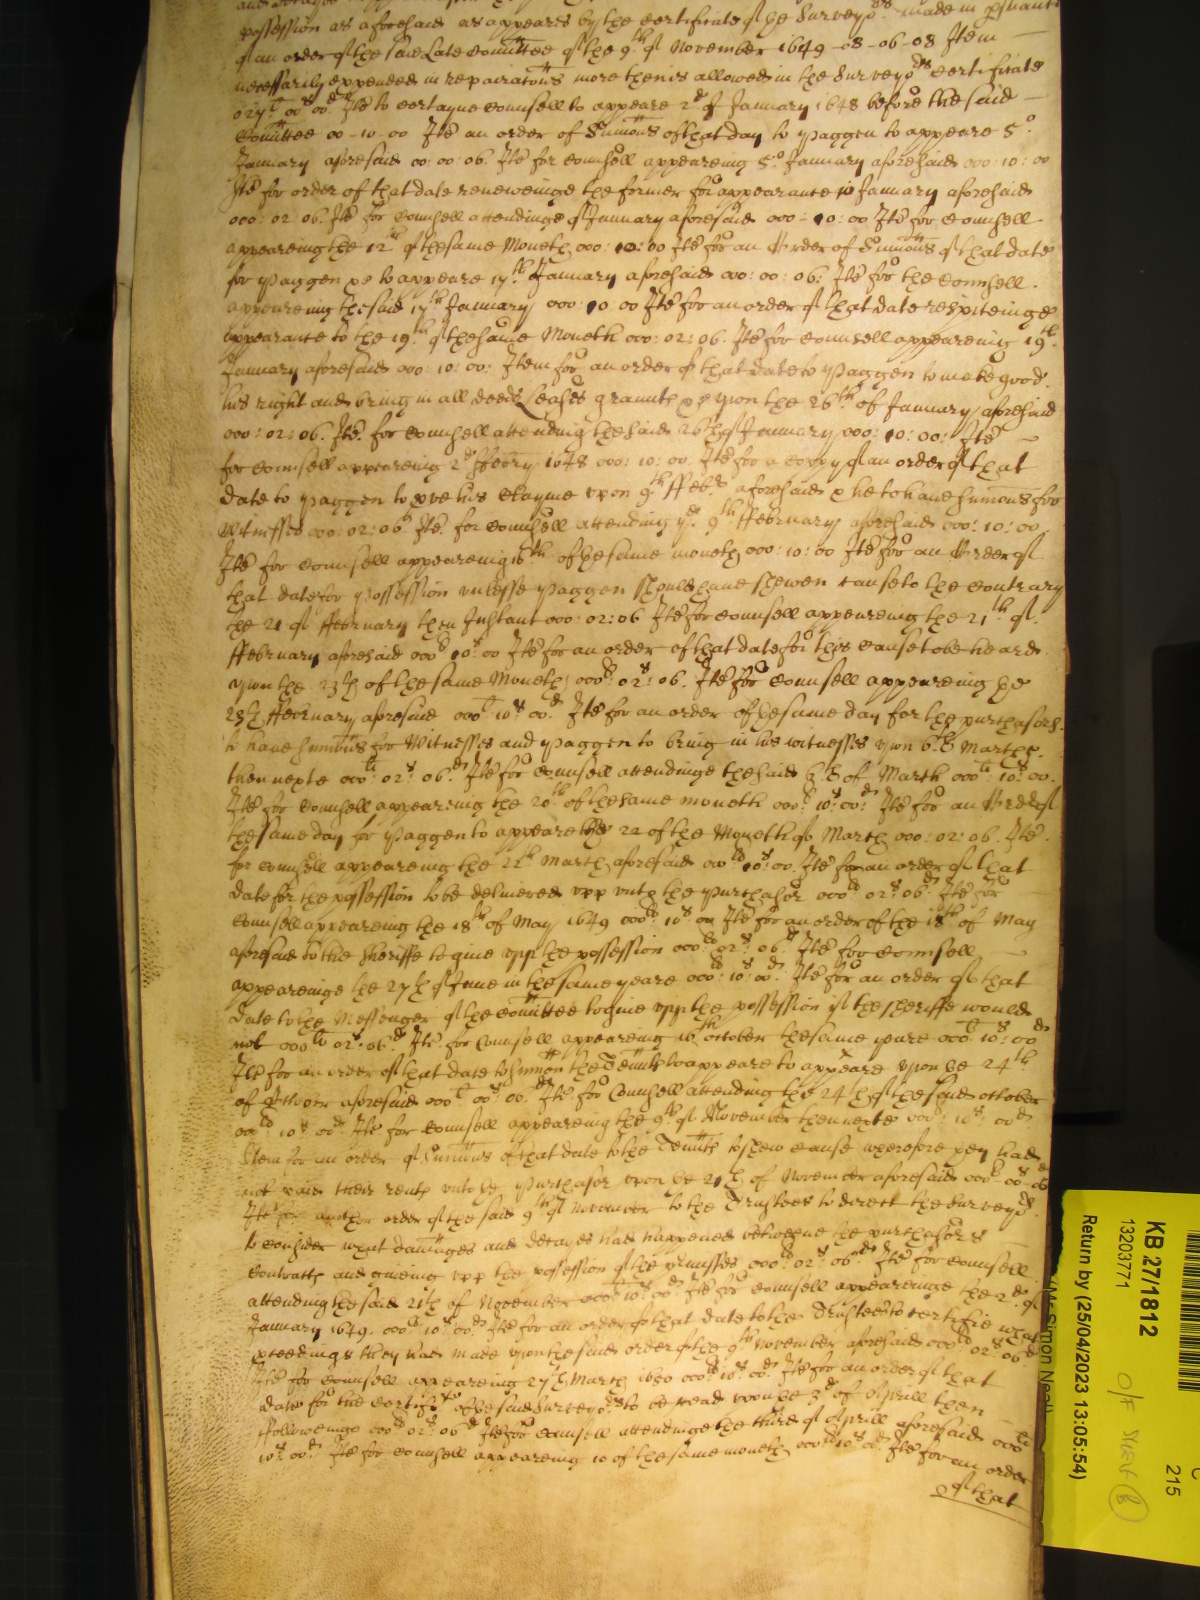 possession as aforesaid as appeares by the Certificate of the Surveyors made in
of an order of the said late Comittee of the 9th of November 1649 -08-06-08 Item
necessarily expended in repairations more then is allowed in the Surveyors Certificate
Ite to Councell to appeare 2d of January 1648 before the said
Comittee 00-10-00 Ite an order of Sumons of that day to Paggen to appeare 5o
January aforesaid 00:00:06. Ite for Counsell appeareing 5o January aforesaid 000:10:00
Ite for order of that date reneweinge the former for appearance 10 January aforesaid
000:02:06. Ite for Counsell attendinge of January aforesaid 000:10:00 Ite for Counsell
appeareing the 12th of the same Moneth 000:10:00 Ite for an Order of Sumons of that date
for Paggen to appeare 17th January aforesaid 000:00:06. Ite for the Counsell
appeareing the said 17th January 000:10:00 Ite for an order of that date respiteinge
appearance to the 19th of the same Moneth 000:02:06. Ite for Counsell appeareing 19th
January aforesaid 000:10:00: Item for an order of that date to Paggen to make good
his right and bring in all deeds Leases graunts upon the 26th of January aforesaid
000:02:06. Ite for Counsell attending the said 26th of January 000:10:00: Ite
for Counsell appeareing 2d ffebry 1648 000:10:00. Ite for a Coppy of an order of that
date to Paggen to his Clayme upon 9th ffebr aforesaid & he to have sumons for
Witnesses 000:02:06 Ite for Counsell attending ye 9th ffebruary aforesaid 000:10:00
Ite for Counsell appeareing 16th of the same moneth 000:10:00 Ite for an Order of
that date for Possession unlesse Paggen should have shewen cause to the Contrary
the 21 of ffebruary then Instant 000:02:06 Ite for Counsell appeareing the 21th of
ffebruary aforesaid 000:10s:00 Ite for an order of that date for this cause to be heard
upon the 23th of the same Moneth 000:02s:06. Ite for Counsell appeareing the
23th ffebruary aforesaid 000l 10s:00d Ite for an order of the same day for the purchasors
to have sumons for Witnesses and Paggen to bring in his witnesses upon 6th March
then nexte 000li:02s:06d Ite for Counsell attendinge the said 6th of March 000li:10s:00
Ite for Counsell appeareing the 20th of the same moneth 000:10s:00d Ite for an Order of
the same day for Paggen to appeare the 22 of the Moneth of March 000:02:06. Ite
for Counsell appeareing the 22th March aforesaid 00li 10s:00. Ite for an order of that
date for the possession to be delivered upp unto the Purchasor 000li 02s 06d Ite for
Counsell appeareing the 18th of May 1649 000li 10s 00 Ite for an order of the 18th of May
aforesaid to the Sheriffe to give upp the possession 000li:02s:06d Ite for Counsell
appeareinge the 27th of June in the same yeare 000li:10s:00d. Ite for an order of that
date to the Messenger of the Comittee to give upp the possession if the sheriffe would
not 000li 02s:06d Ite for Counsell appeareing 16th October the same yeare 000l:10s:00d
Ite for an order of that date to sumon the Tennts to appeare upon the 24th
of October aforesaid 000l 00s:00d Ite for Counsell attending the 24th of the said October
000li 10s 00d Ite for Counsell appeareing the 9th of November then nexte 000:10s:00d
Item for an order of Sumons of that date to the Tennts to shew cause wherefore they had
not paid their rents unto the Purchasor upon the 21th of November aforesaid 000li 00s 06
Ite for another order of the said 9th of November to the Trustees to direct the Surveyors
to consider what damages and decayes had happened betweene the purchasors
Contracts and giveing upp the possession of the premisses 000li:02s:06d Ite for Counsell
attending the said 21th of November 000:10s:00 Ite for Counsell appeareinge the 2d of
January 1649. 000li 10s:00d Ite for an order of that date to the Trustees to certifie what
proceedings they had made upon the said order of the 9th November aforesaid 000li 02s 06d
Ite for Counsell appeareing 27th March 1650 000li 10s:00d Ite for an order of that
date for the Certificate of the said Surveyors to be read upon the 3d of Aprill then
followeinge 000li 02s 06d Ite for Counsell attendinge the third of Aprill aforesaid 000li
10s:00d Ite for Counsell appeareing 10 of the same moneth 000li 10s 00d Ite for an order
of that
KB 27/1812
13203771
Return by (25/04/2023 13:05:54)
215